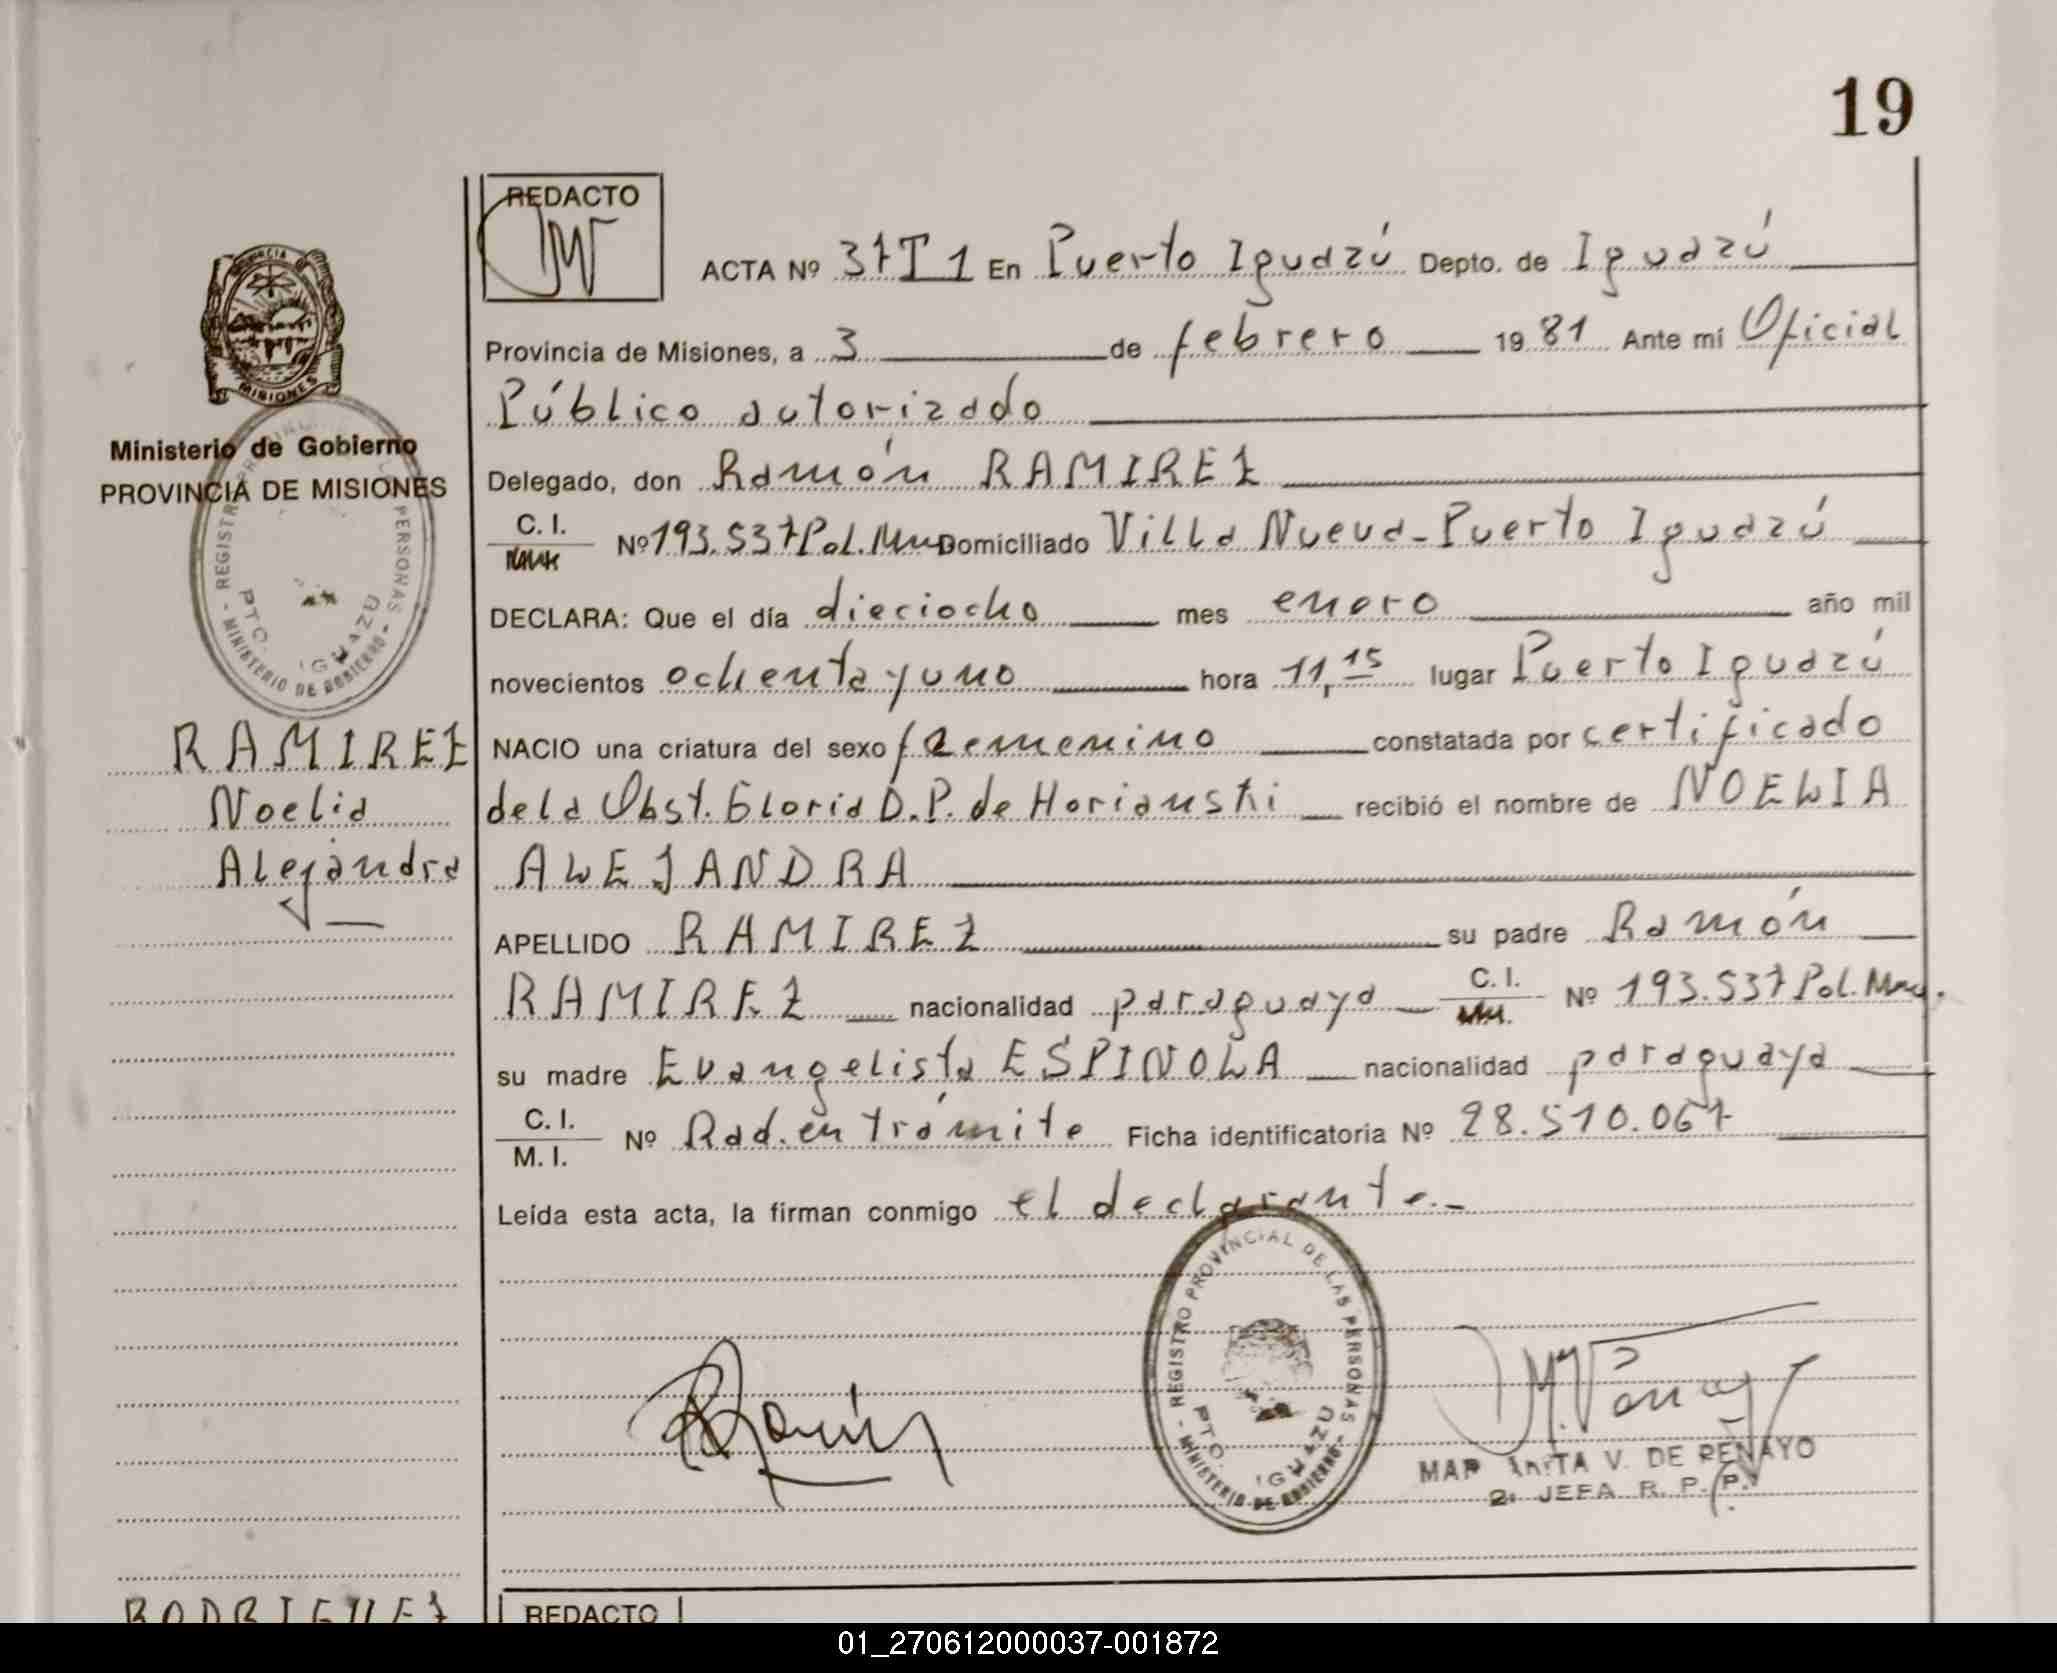 19
REDACTO
ACTA Nº 37T1 En Puerto Iguazú Depto. de Iguazú
Provincia de Misiones, a 3 de febrero 1981 Ante mí Oficial
Público autorizado
Delegado, don Ramón RAMIREZ
C. I. Nº 193.537 Pol. Domiciliado Villa Nueva - Puerto Iguazú
DECLARA: Que el día dieciocho mes enero año mil
novecientos ochenta y uno hora 11,15 lugar Puerto Iguazú
NACIO una criatura del sexo femenino constatada por certificado
de la Obst. Gloria D.P. de Horianski recibió el nombre de NOELIA
ALEJANDRA
APELLIDO RAMIREZ su padre Ramón
RAMIREZ nacionalidad paraguaya C. I. Nº 193.537 Pol.
su madre Evangelista ESPINOLA nacionalidad paraguaya
C. I.
M. I. Nº Rad. en trámite Ficha identificatoria Nº 28.510.067
Leída esta acta, la firman conmigo el declarante.-
PROVINCIA
MISIONES
Ministerio de Gobierno
PROVINCIA DE MISIONES
REGISTRO PROVINCIAL DE LAS PERSONAS
PTO. IGUAZU
- MINISTERIO DE GOBIERNO -
RAMIREZ
Noelia
Alejandra
- REGISTRO PROVINCIAL DE LAS PERSONAS
PTO. IGUAZU
- MINISTERIO DE GOBIERNO -
V. DE RENAYO
2ª JEFA R. P. P.
RODRIGUEZ
REDACTO
01_270612000037-001872